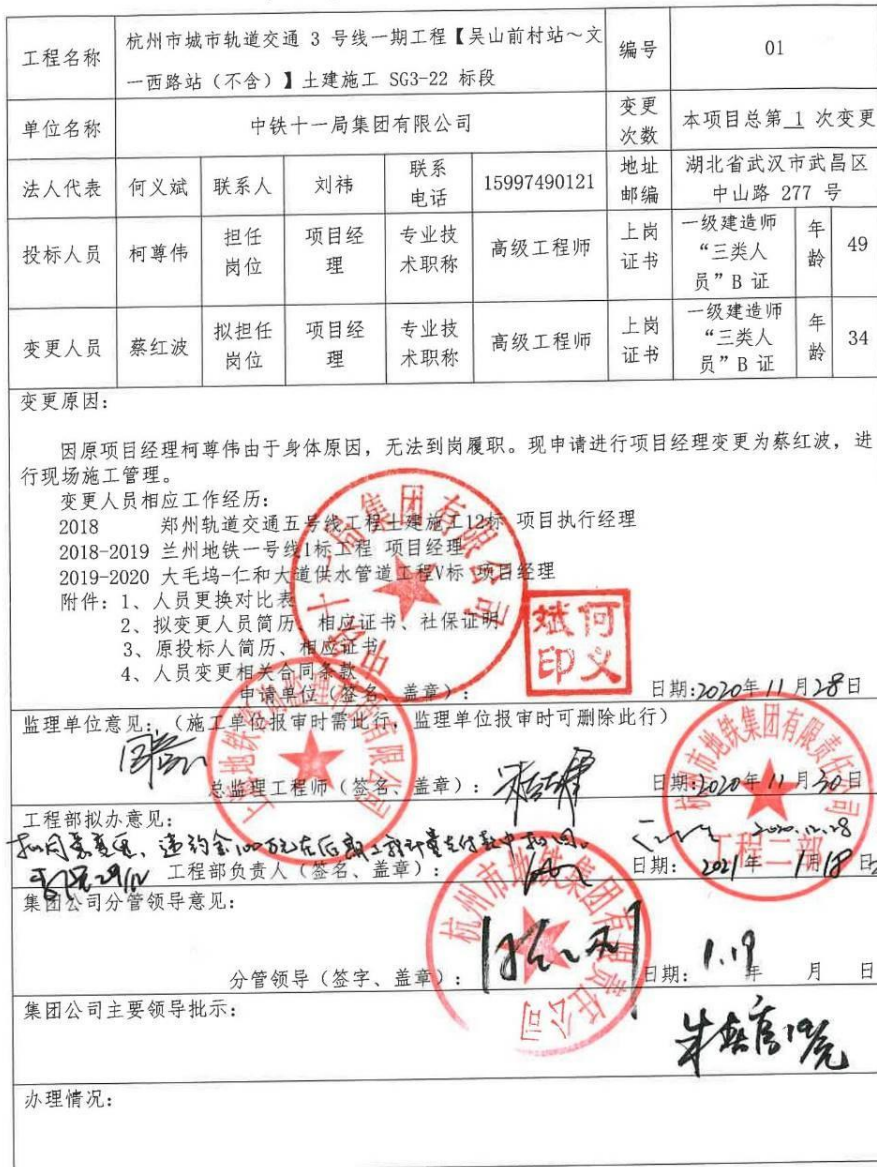 工程名称 杭州市城市轨道交通 3 号线一期工程【吴山前村站～文一西路站（不含）】土建施工 SG3-22 标段 编号 01
单位名称 中铁十一局集团有限公司 变更次数 本项目总第 1 次变更
法人代表 何义斌 联系人 刘祎 联系电话 15997490121 地址邮编 湖北省武汉市武昌区中山路 277 号
投标人员 柯尊伟 担任岗位 项目经理 专业技术职称 高级工程师 上岗证书 一级建造师“三类人员”B 证 年龄 49
变更人员 蔡红波 拟担任岗位 项目经理 专业技术职称 高级工程师 上岗证书 一级建造师“三类人员”B 证 年龄 34
变更原因：
因原项目经理柯尊伟由于身体原因，无法到岗履职。现申请进行项目经理变更为蔡红波，进
行现场施工管理。
变更人员相应工作经历：
2018 郑州轨道交通五号线工程土建施工12标 项目执行经理
2018-2019 兰州地铁一号线1标工程 项目经理
2019-2020 大毛坞-仁和大道供水管道工程V标 项目经理
附件：1、人员更换对比表
2、拟变更人员简历、相应证书、社保证明
3、原投标人简历、相应证书
4、人员变更相关合同条款
申请单位（签名、盖章）： 日期：2020年 11 月 28 日
中铁十一局集团有限公司
何义斌印
监理单位意见：（施工单位报审时需此行，监理单位报审时可删除此行）
同意
总监理工程师（签名、盖章）： 日期：2020年 11 月 30 日
上海地铁咨询监理 有限公司
杭州市地铁集团有限责任公司
工程二部
工程部拟办意见：
拟同意变更，违约金100万元在后期工程计量支付款中扣回。 2020.12.28
工程部负责人（签名、盖章）： 日期： 2021年 1月18 日
集团公司分管领导意见：
杭州市地铁集团有限责任公司
分管领导（签字、盖章）： 日期： 1.19 年 月 日
集团公司主要领导批示：
办理情况：